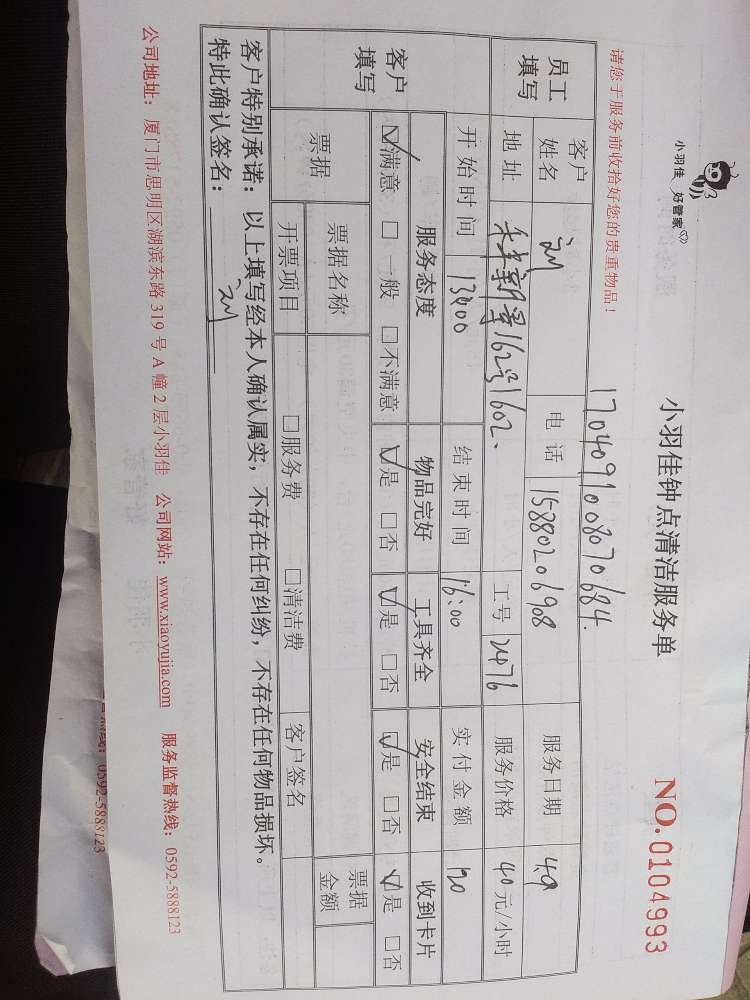 小羽佳 好管家
小羽佳钟点清洁服务单
NO.0104993
请您于服务前收拾好您的贵重物品！
1704091008070684.
员工填写
客户姓名 刘 电话 15880206908 服务日期 4.9
地址 162号1602、 工号 2476 服务价格 40元/小时
开始时间 13:00 结束时间 16:00 实付金额 120
客户填写
服务态度 物品完好 工具齐全 安全结束 收到卡片
☑满意 □一般 □不满意 ☑是 □否 ☑是 □否 ☑是 □否 ☑是 □否
票据 票据名称 票据金额
开票项目 □服务费 □清洁费 客户签名
客户特别承诺：以上填写经本人确认属实，不存在任何纠纷，不存在任何物品损坏。
特此确认签名： 刘
公司地址：厦门市思明区湖滨东路319号A幢2层小羽佳 公司网站：www.xiaoyujia.com 服务监督热线：0592-5888123
督热线：0592-5888123